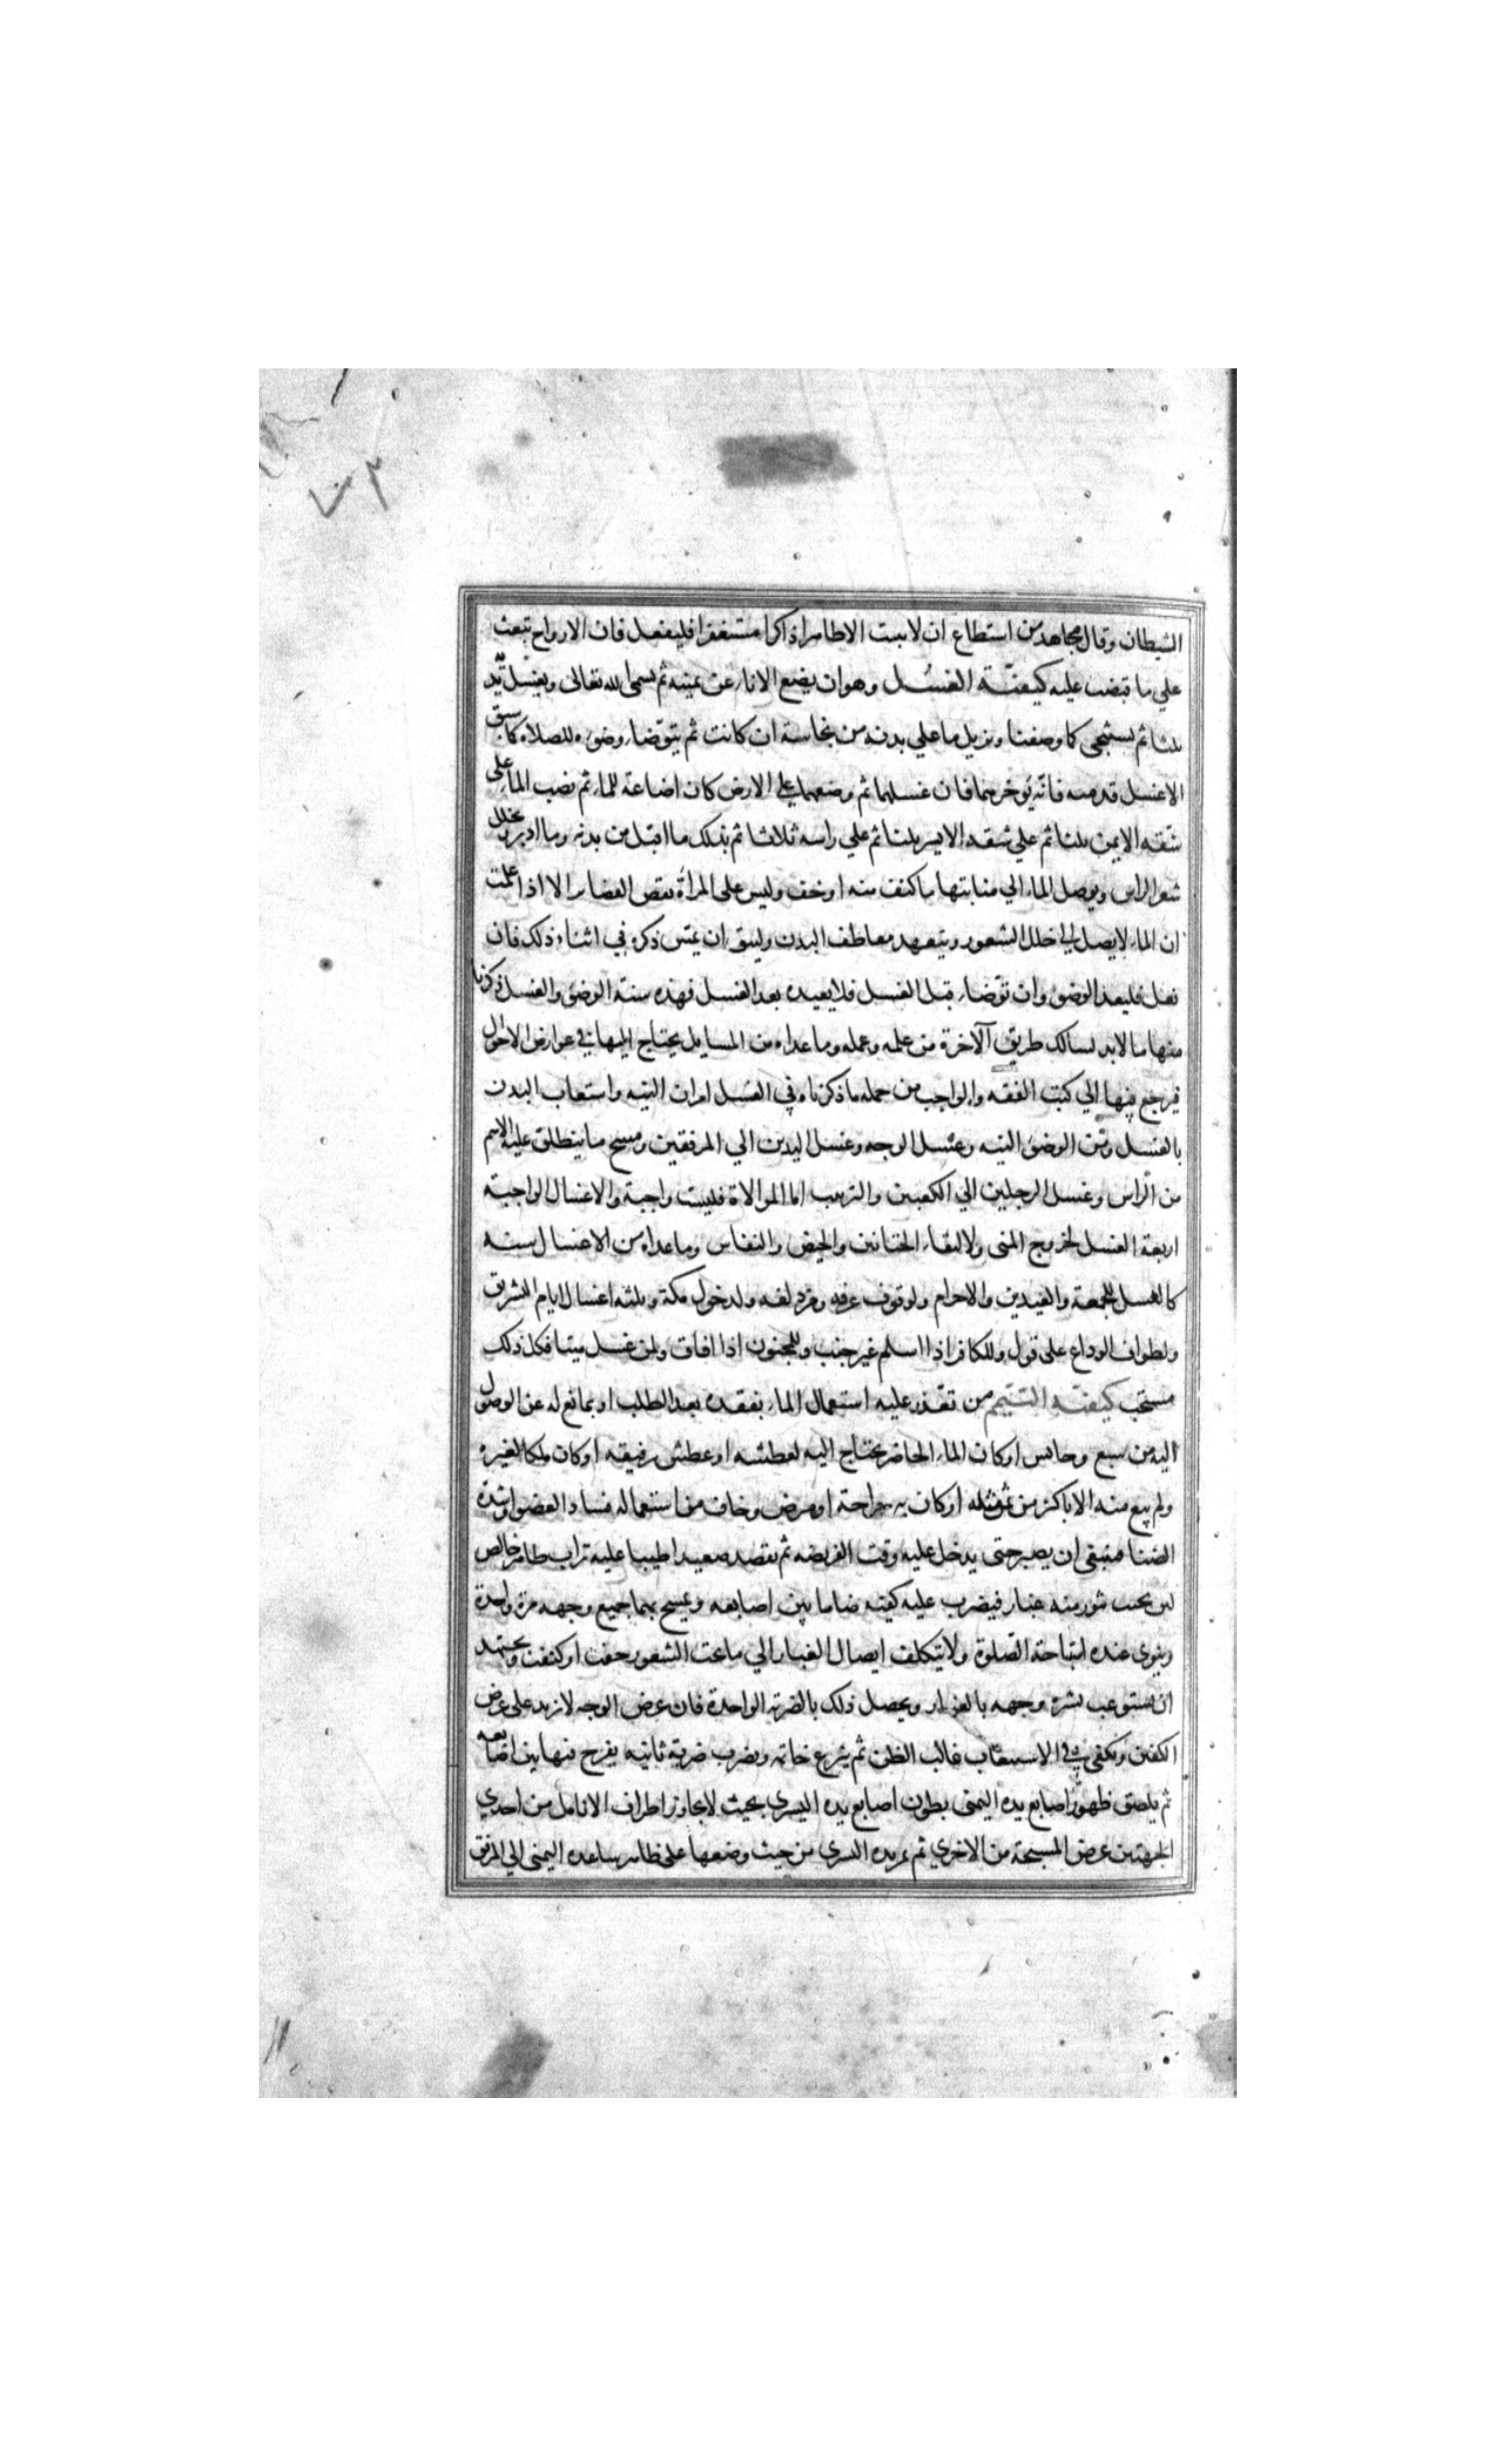 الشيطان وقال مجاهد من استطاع ان لا يبيت الا طاهرا ذاكرا مستغفرا فليفعل فان الارواح تبعث
علي ما قبضت عليه كيفيّة الغسُل وهو ان يضع الاناء عن يمينه ثم يسمى الله تعالى ويغسل يديه
ثلثا ثم يستنجى كما وصفنا ويزيل ما علي بدنه من نجاسة ان كانت ثم يتوضاء وضوءه للصلاه كما سبق
الا غسل قدميه فانّه يؤخرهما فان غسلهما ثم وضعهما علي الارض كان اضاعة للماء ثم يصب الماء على
شقه الايمن ثلثا ثم علي شقه الايسر ثلثا ثم علي راسه ثلاثا ثم يدلك ما اقبل من بدنه وما ادبر ويخلل
شعر الراس ويوصل الماء الي منابتها ما كثف منه او خف وليس على المراة نقض الضفاير الا اذا علمت
ان الماء لا يصل الي خلل الشعور ويتعهد معاطف البدن وليتق ان يمس ذكره في اثناء ذلك فان
فعل فليعد الوضوء وان توضاء قبل الغسل فلا يعيده بعد الغسل فهذه سنة الوضوء والغسل ذكرنا
منها ما لا بد لسالك طريق الآخرة من علمه وعمله وما عداه من المسايل يحتاج اليها في عوارض الاحوال
فيرجع فيها الي كتب الفقه والواجب من جمله ما ذكرناه في الغسل امران النيه واستيعاب البدن
بالغسل ومن الوضوء النيه وغسل الوجه وغسل اليدين الي المرفقين ومسح ما ينطلق عليه الاسم
من الراس وغسل الرجلين الي الكعبين والترتيب اما الموالاة فليست واجبة والاغسال الواجبة
اربعة الغسل لخروج المنى ولالتقاء الختانين والحيض والنفاس وما عداه من الاغسال سنه
كالغسل للجمعة والعيدين والاحرام ولوقوف عرفه ومزدلفه ولدخول مكة وثلثه اغسال ايام التشريق
ولطواف الوداع على قول وللكافر اذا اسلم غير جنب وللمجنون اذا افاق ولمن غسل ميتا فكل ذلك
مستحب كيفيّة التيمّم من تعذر عليه استعمال الماء بفقده بعد الطلب او بمانع له عن الوصول
اليه من سبع وحابس او كان الماء الحاضر يحتاج اليه لعطشه او عطش رفيقه او كان ملكا لغيره
ولم يبع منه الا باكثر من ثمن مثله او كان به جراحة او مرض وخاف من استعماله فساد العضو او شدة
الضنا فينبغى ان يصبر حتى يدخل عليه وقت الفريضه ثم يقصد صعيدا طيبا عليه تراب طاهر خالص
لين بحيث يثور منه غبار فيضرب عليه كفيه ضاما بين اصابعه ويمسح بهما جميع وجهه مرة واحدة
وينوى عنده استباحة الصلوة ولا يتكلف ايصال الغبار الي ما تحت الشعور خفت او كثفت ويجتهد
ان يستوعب بشرة وجهه بالغبار ويحصل ذلك بالضربة الواحدة فان عرض الوجه لا يزيد على عرض
الكفين ويكفي في الاستيعاب غالب الظن ثم ينزع خاتمه ويضرب ضربة ثانيه يفرج فيها بين اصابعه
ثم يلصق ظهور اصابع يده اليمنى ببطون اصابع يده اليسري بحيث لا يجاوز اطراف الانامل من احدي
الجهتين عرض المسبحة من الاخري ثم يمر يده اليسري من حيث وضعها على ظاهر ساعده اليمنى الي المرفق